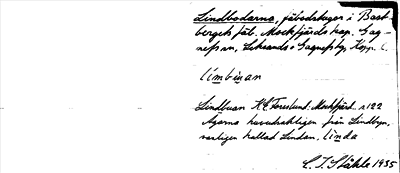 Lindbodarna, fäbodstugor i Bast-
bergets fäb. Mockfjärds kap. Gag-
nefs sn, Leksands o Gagnefs tg, Kopp. l.
limbuan
Lindbuan K.E. Forslund: Mockfjärd s 122
Ägarna huvudsakligen från Lindbyn,
vanligen kallad Lindan, linda
C. I. Ståhle 1935